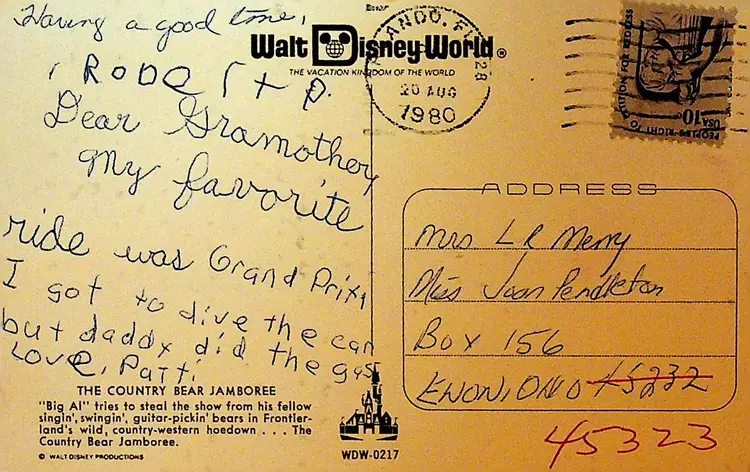 Having a good time,
RODA
Dear Gramother,
My favorite
ride was Grand Prix,
I got to dive the car
but daddy did the gas
Love, Patti
THE COUNTRY BEAR JAMBOREE
"Big Al" tries to steal the show from his fellow
singin', swingin', guitar-pickin' bears in Frontier-
land's wild, country-western hoedown . . . The
Country Bear Jamboree.
© WALT DISNEY PRODUCTIONS
Walt Disney World®
THE VACATION KINGDOM OF THE WORLD
WDW-0217
ANDO, FL
328
20 AUG
1980
PEOPLE'S RIGHT TO
PETITION FOR REDRESS
USA 10c
ADDRESS
Mrs L R Merry
Miss Joan Pendleton
Box 156
ENON, OHIO 45232
45323